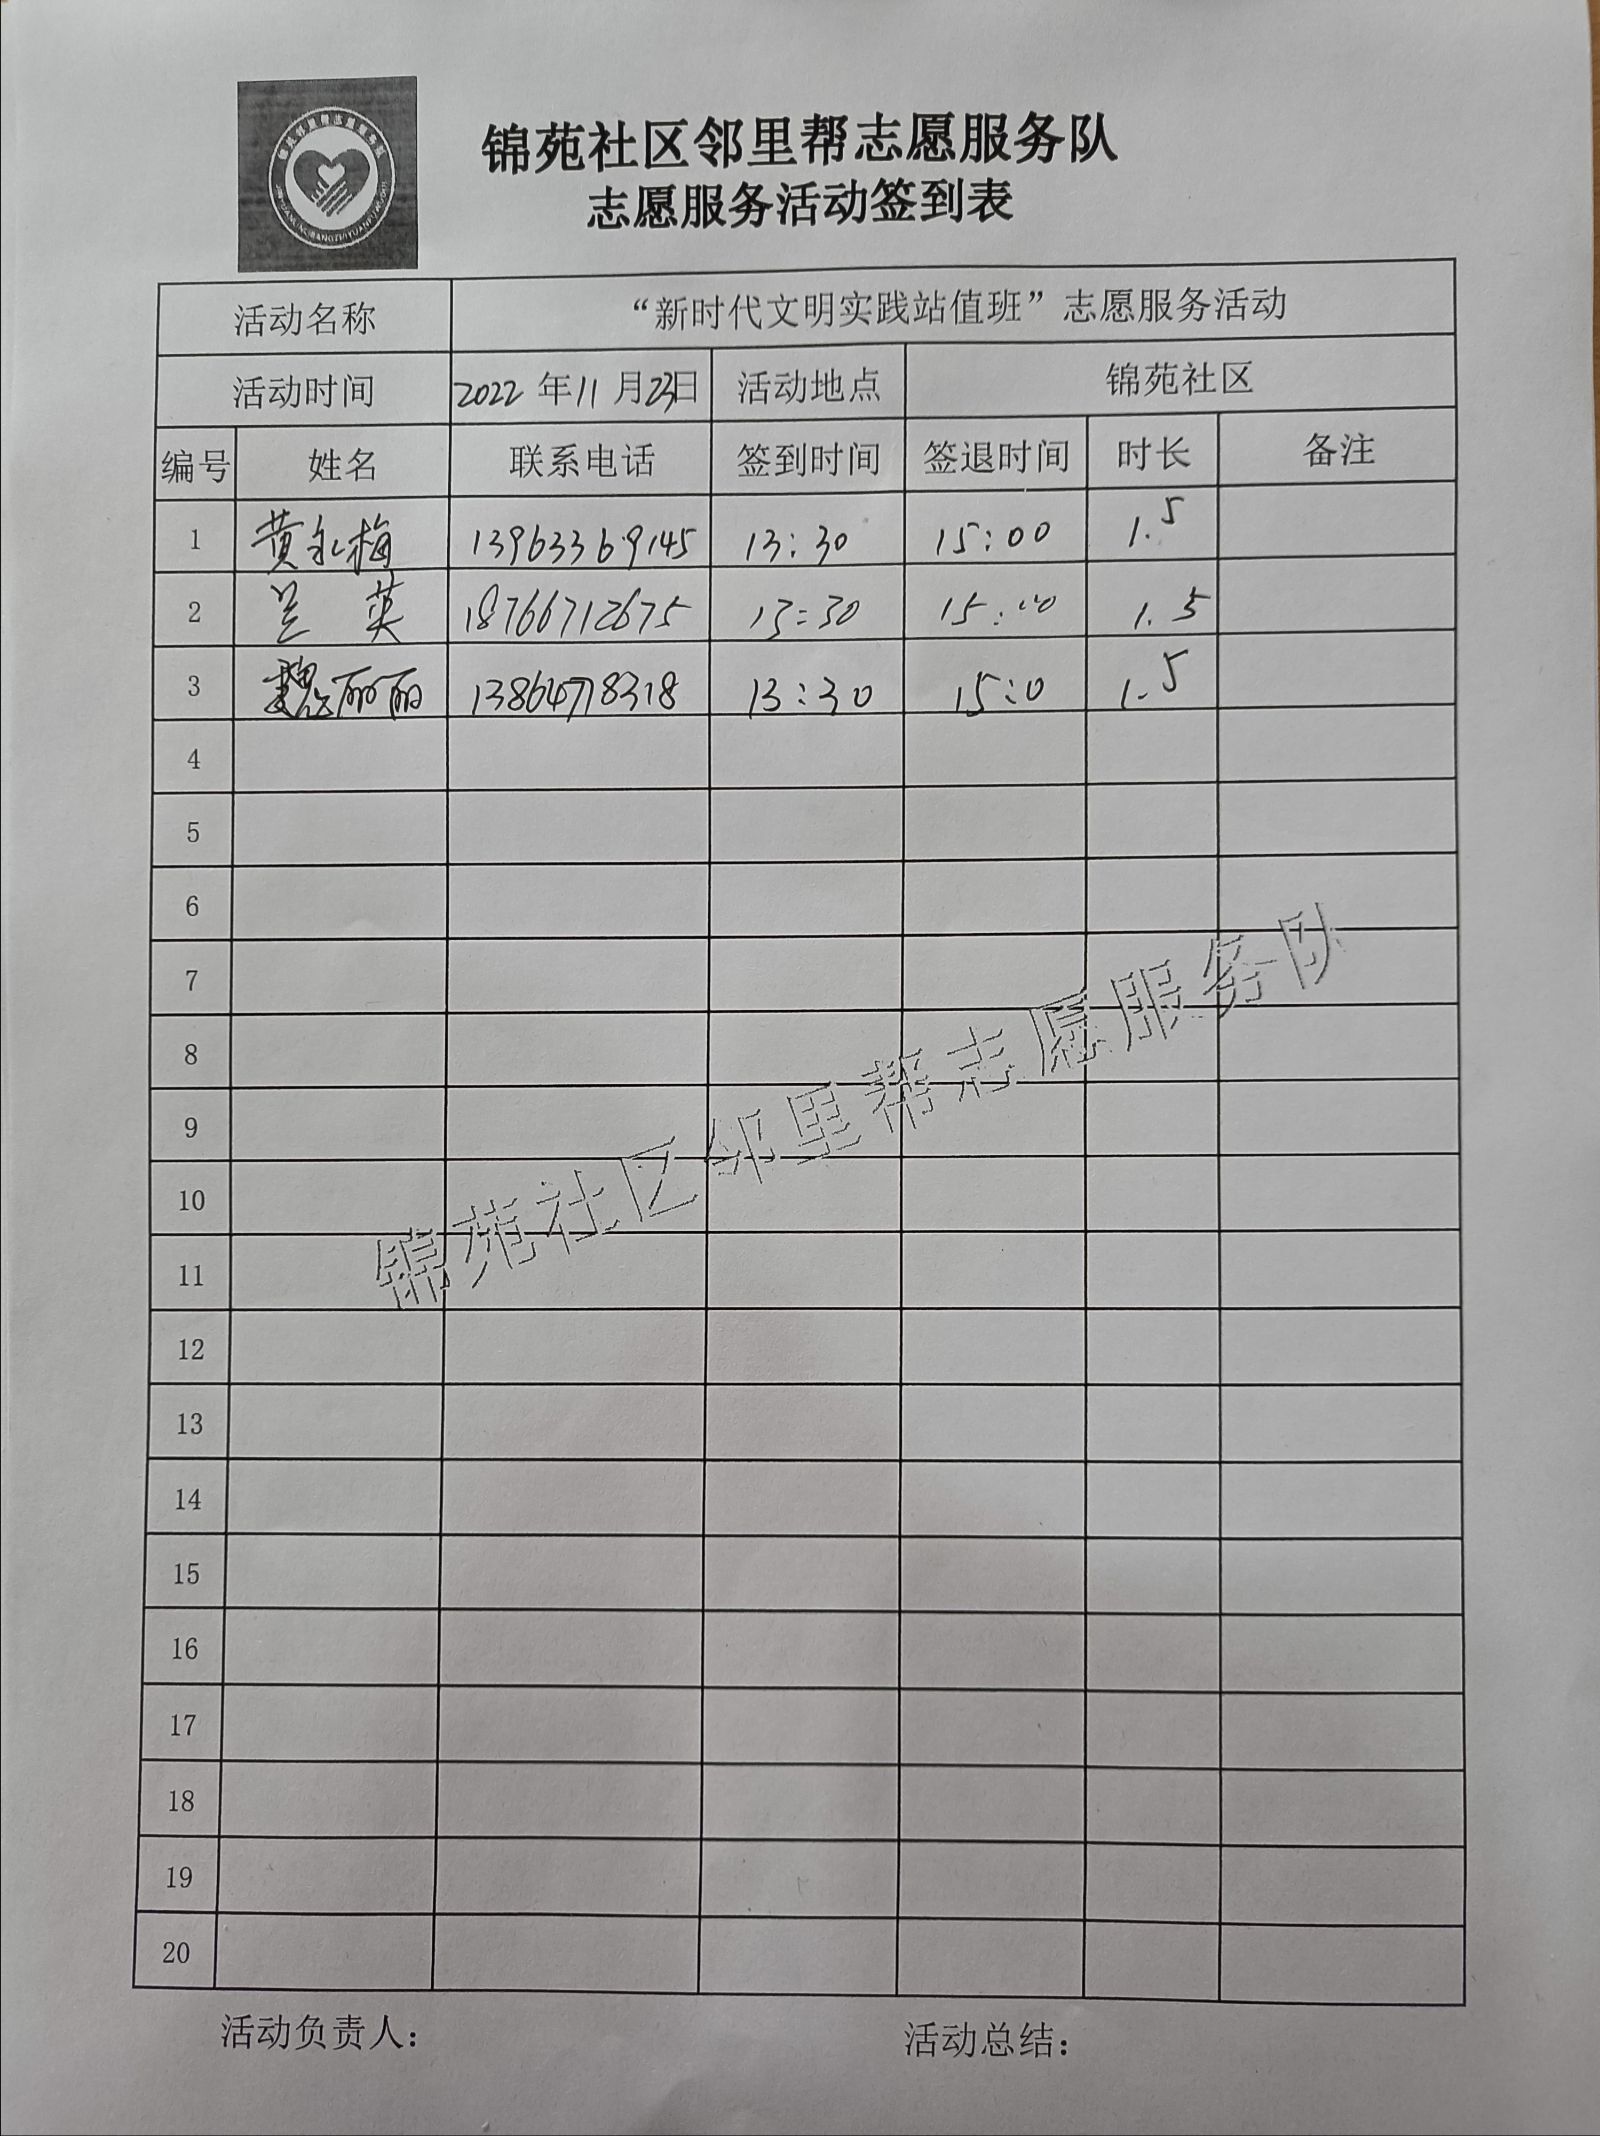 锦苑社区邻里帮志愿服务队
志愿服务活动签到表
活动名称 “新时代文明实践站值班”志愿服务活动
活动时间 2022年11月23日 活动地点 锦苑社区
编号 姓名 联系电话 签到时间 签退时间 时长 备注
1 黄永梅 13963369145 13:30 15:00 1.5
2 兰英 18766712675 13:30 15:00 1.5
3 魏丽丽 13864718318 13:30 15:0 1.5
4
5
6
7
8
9
10
11
12
13
14
15
16
17
18
19
20
锦苑社区邻里帮志愿服务队
活动负责人: 活动总结: